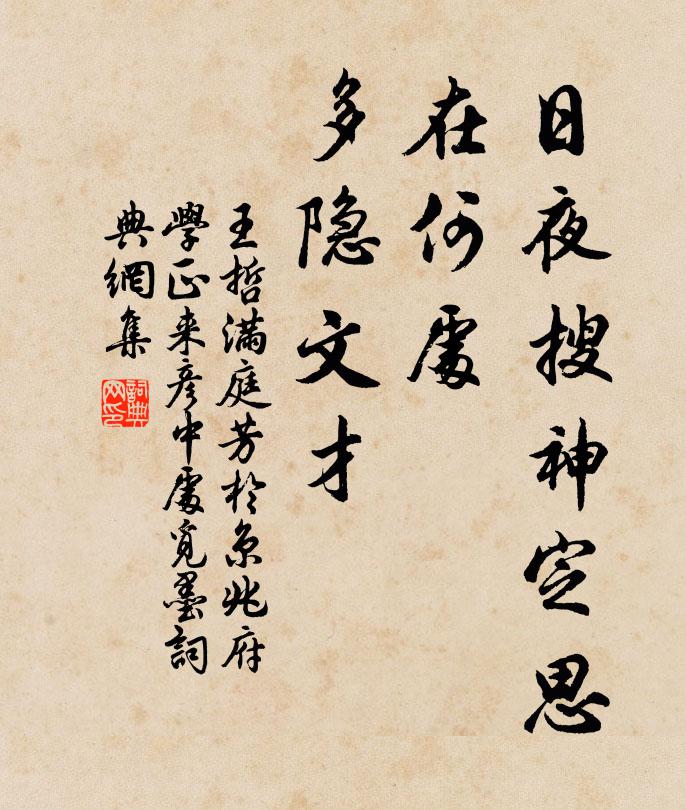 日夜搜神定思
在何處
多隐文才
王哲滿庭芳於京兆府
學正来彦中處覓墨詞
典網集
詞典網印